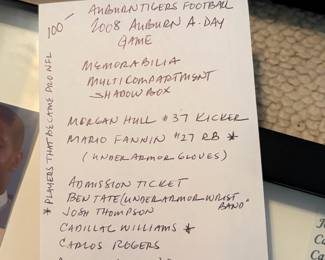 100-
AUBURN TIGERS FOOTBALL
2008 AUBURN A-DAY
GAME
MEMORABILIA
MULTICOMPARTMENT
SHADOWBOX
MORGAN HULL #37 KICKER
MARIO FANNIN #27 RB *
(UNDER ARMOR GLOVES)
ADMISSION TICKET
BEN TATE (UNDER ARMOR WRIST
BAND"
JOSH THOMPSON
CADILLAC WILLIAMS *
CARLOS ROGERS
* PLAYERS THAT BECAME PRO NFL
Ca
Ca